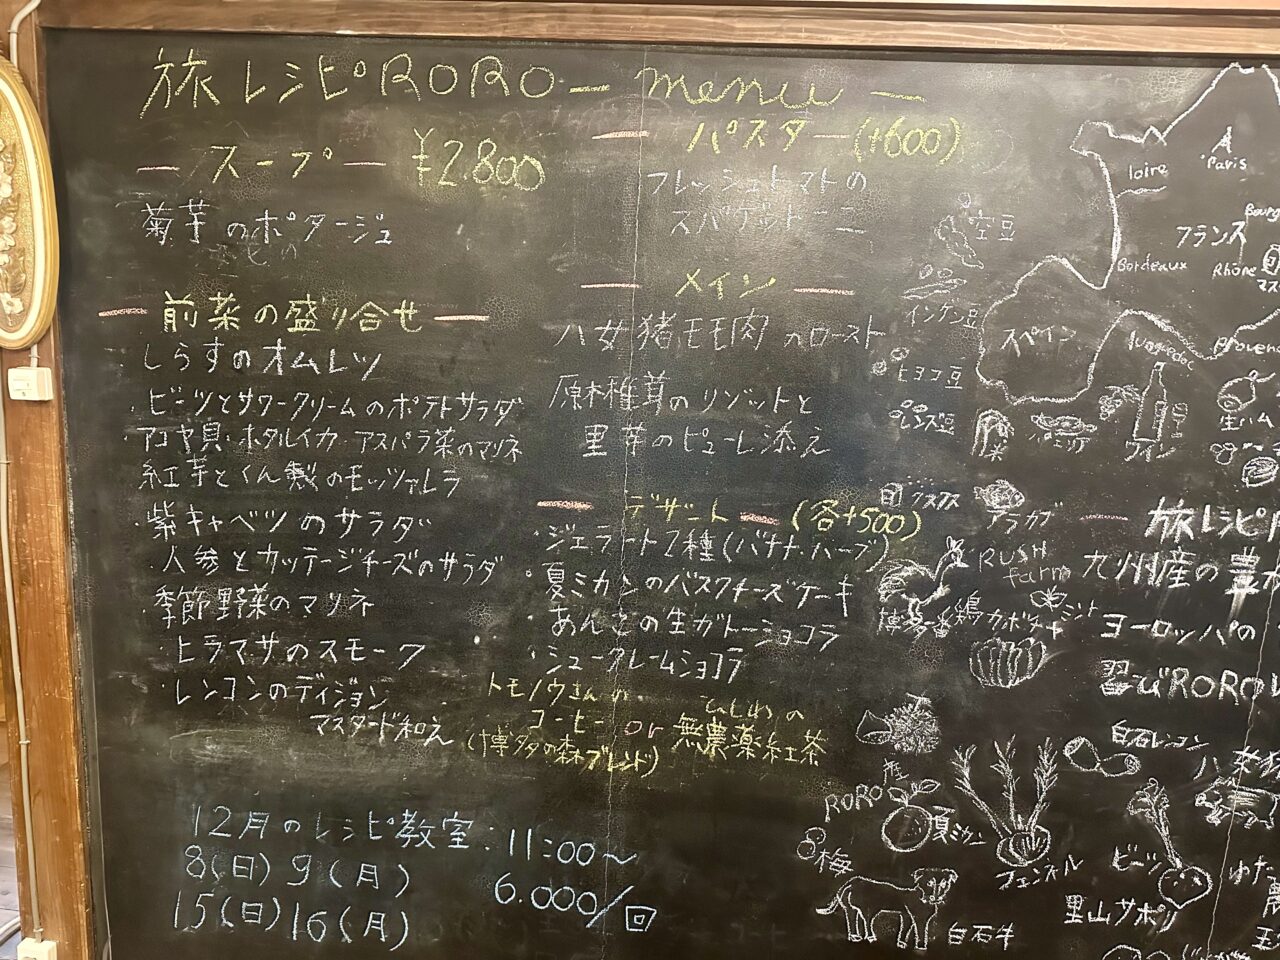 旅レシピRORO - menu -
- スープ - ¥2.800
菊芋のポタージュ
- 前菜の盛り合せ -
しらすのオムレツ
・ビーツとサワークリームのポテトサラダ
・アコヤ貝・ホタルイカ・アスパラ菜のマリネ
紅芋とくん製のモッツァレラ
・紫キャベツのサラダ
・人参とカッテージチーズのサラダ
・季節野菜のマリネ
・ヒラマサのスモーク
・レンコンのディジョン
マスタード和え
- パスター (+600)
フレッシュトマトの
スパゲットーニ
- メイン -
八女猪モモ肉のロースト
原木椎茸のリゾットと
里芋のピューレ添え
- デザート - (各+500)
・ジェラート2種(バナナ・ハーブ)
・夏ミカンのバスクチーズケーキ
・あんこの生ガトーショコラ
・シュークレームショコラ
トモノウさんの
コーヒー or
(博多の森ブレンド)
無農薬紅茶
12月のレシピ教室:11:00~
8(日)9(月)
15(日)16(月)
6.000/回
空豆
インゲン豆
ヒヨコ豆
レンズ豆
loire
Paris
フランス
Bordeaux
Rhône
スペイン
languedoc
パエリア
ワイン
生ハム
クスクス
アラカブ
RUSH
farm
博多一番鶏
カボチャ
ミント
旅レシピ
九州産の豊
ヨーロッパの
習びRORO
白石レンコン
RORO
夏ミカン
梅
フェンネル
ビーツ
里山サポリ
白石牛